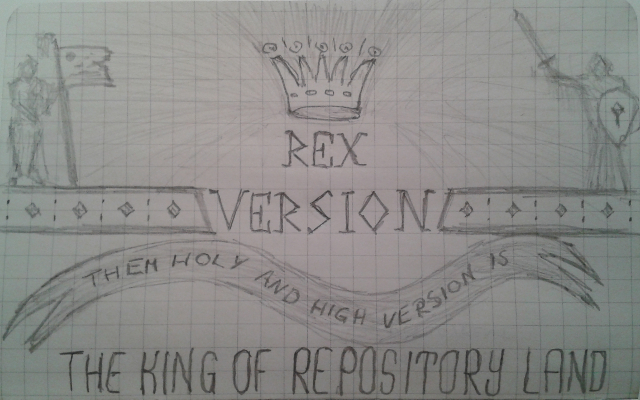 REX
VERSION
THEM HOLY AND HIGH VERSION IS
THE KING OF REPOSITORY LAND